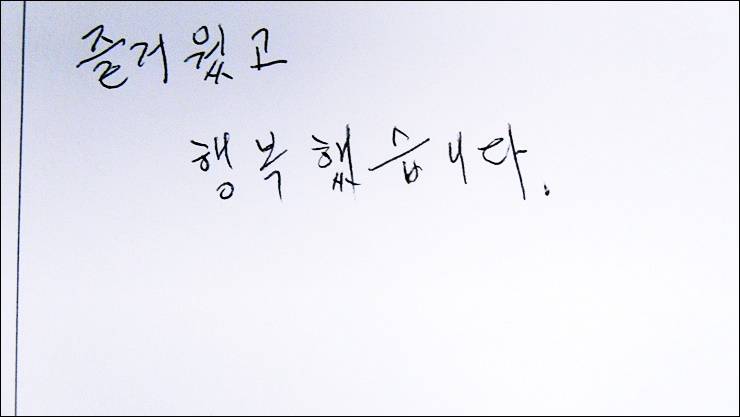 즐거웠고
행복했습니다.